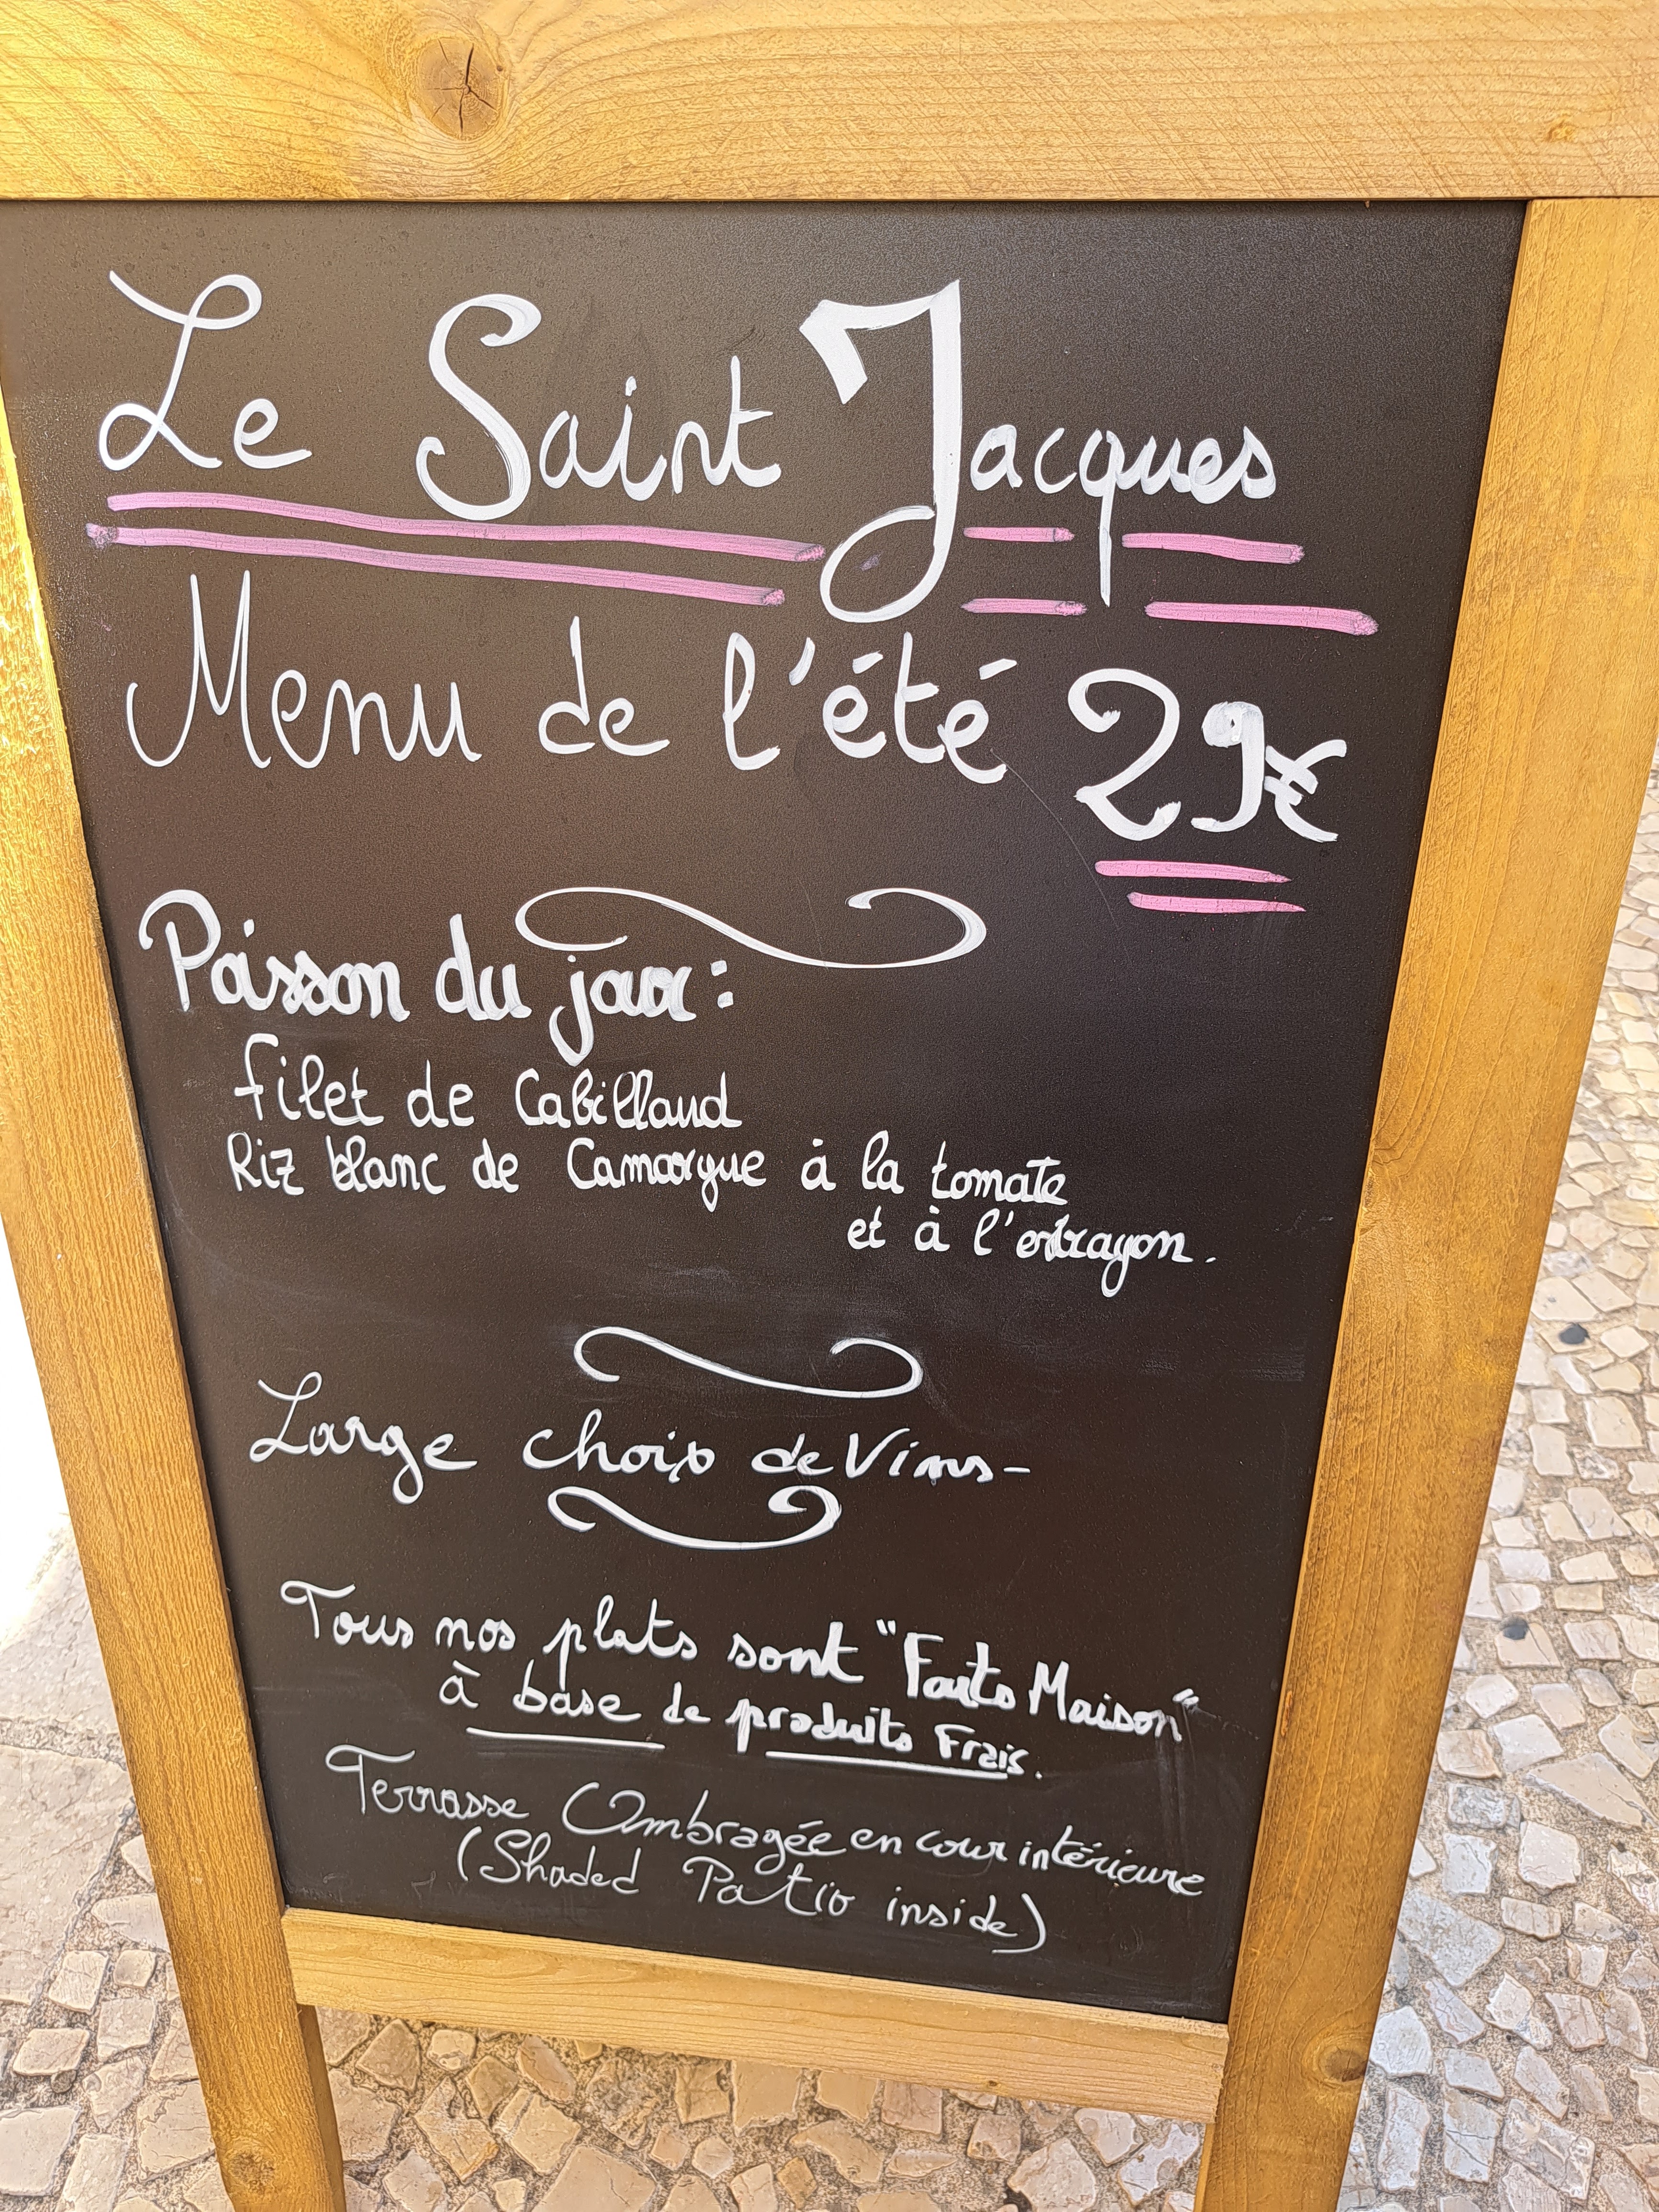 Le Saint Jacques
Menu de l'été 29€
Poisson du jour :
filet de Cabillaud
Riz blanc de Camargue à la tomate
et à l'estragon.
Large choix de Vins-
Tous nos plats sont "Faits Maison"
à base de produits Frais.
Terrasse Ombragée en cour intérieure
(Shaded Patio inside)